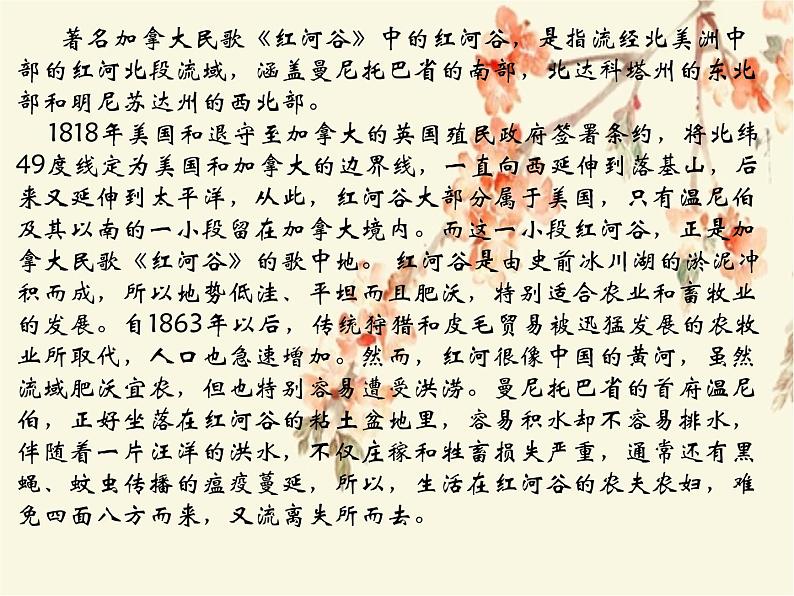 著名加拿大民歌《红河谷》中的红河谷，是指流经北美洲中
部的红河北段流域，涵盖曼尼托巴省的南部，北达科塔州的东北
部和明尼苏达州的西北部。
1818年美国和退守至加拿大的英国殖民政府签署条约，将北纬
49度线定为美国和加拿大的边界线，一直向西延伸到落基山，后
来又延伸到太平洋，从此，红河谷大部分属于美国，只有温尼伯
及其以南的一小段留在加拿大境内。而这一小段红河谷，正是加
拿大民歌《红河谷》的歌中地。 红河谷是由史前冰川湖的淤泥冲
积而成，所以地势低洼、平坦而且肥沃，特别适合农业和畜牧业
的发展。自1863年以后，传统狩猎和皮毛贸易被迅猛发展的农牧
业所取代，人口也急速增加。然而，红河很像中国的黄河，虽然
流域肥沃宜农，但也特别容易遭受洪涝。曼尼托巴省的首府温尼
伯，正好坐落在红河谷的粘土盆地里，容易积水却不容易排水，
伴随着一片汪洋的洪水，不仅庄稼和牲畜损失严重，通常还有黑
蝇、蚊虫传播的瘟疫蔓延，所以，生活在红河谷的农夫农妇，难
免四面八方而来，又流离失所而去。